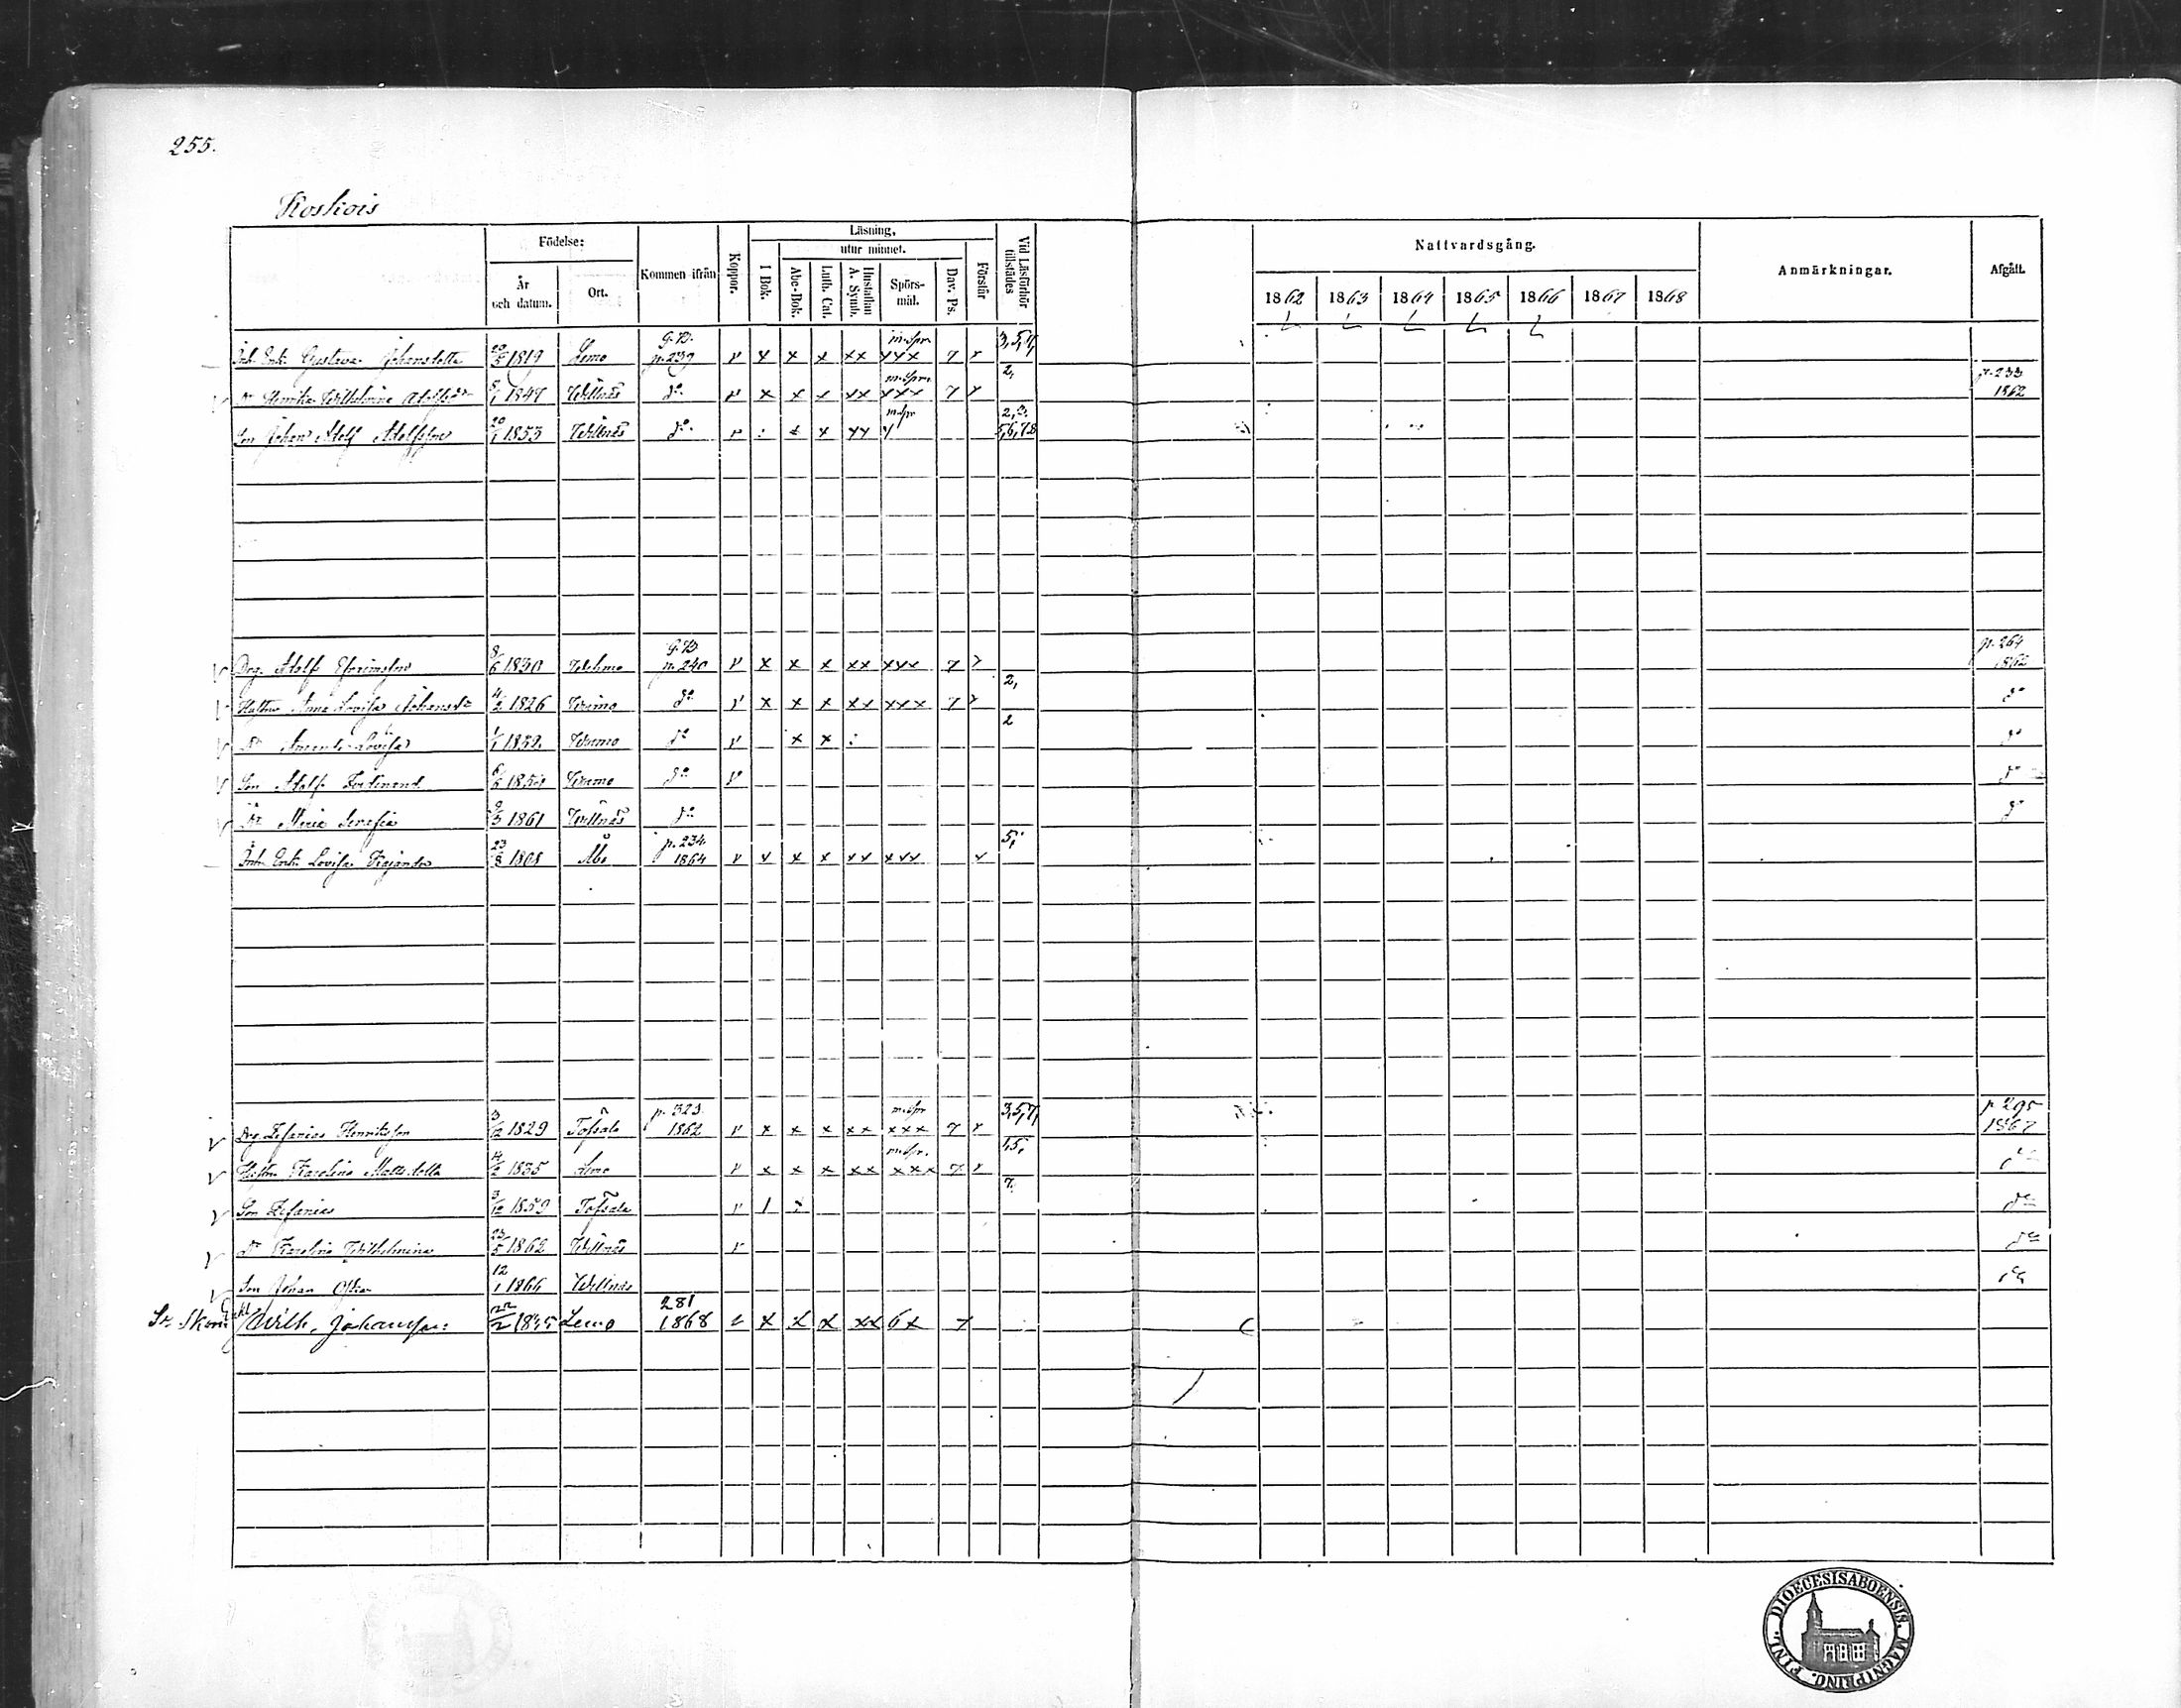 255.
Koskois
Födelse:
År och datum.
Ort.
Kommen ifrån
Koppor.
Läsning,
utur minnet.
I Bok.
Abc-Bok.
Luth. Cat.
Hustaflan A. Symb.
Spörs-mål.
Dav. Ps.
Förstår
Vid Läsförhör tillstädes
Nattvardsgång.
1862 1863 1864 1865 1866 1867 1868
Anmärkningar.
Afgått.
Inh. Enk. Gustava Johansdotter 1819 Lemo G.B. p. 239 v x x x xx m.spr. xxx 7 x 3,5,7,
Dr Henrika Wilhelmina Adolfsdr 5/1 1847 Willnäs do v x x x xx m.spr. xxx 7 x 2, p. 233 1862
Son Johan Adolf Adolfsson 20/1 1853 Willnäs do x xx m.spr 2,3. 5,6,7,8
Drg. Adolf Efraimsson 8/6 1830 Wehmo G.B. p. 240 v x x x xx xxx 7 p. 264 1862
Hustru Anna Lovisa Johansdr 4/2 1826 Wirmo do v x x x xx xxx 7 2, do
Dr Lovisa 1/1 Wirmo do v x x : 2 do
Son Adolf Ferdinand Wirmo do v do
Dr Maria Serafia 9/3 1861 Willnäs do do
Inh. Enk. Lovisa 23/8 1808 Åbo p. 234 1864 v x x x xx xxx x 5,
Drg. Zefanias Henriksson 3/12 1829 Töfsala p. 323. 1862 v x x x xx m.spr xxx 7 x 3,5,7, p 295 1867
Hustru Karolina Mattsdotter 4/2 1835 Lemo v x x x xx m.spr. xxx 7 x 5, do
Son Zefanias 3/12 1859 Töfsala v 7. do
Dr Karolina Wilhelmina 23/5 1862 Willnäs v do
Son Johan Oskar 12/1 1866 Willnäs do
Wilh. Johansson: 22/2 1835 Lemo 281 1868 x x x xx 6x
DIOECESIS ABOENSIS. MAGNI PRINC. FINL.